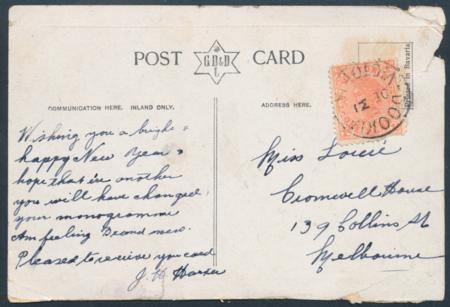 POST CARD
G.D&D
L
COMMUNICATION HERE. INLAND ONLY.
ADDRESS HERE.
Printed in Bavaria
12 10
Wishing you a bright &
happy New Year &
hope that in another
you will have changed
your monogramme
Am feeling Grand now.
Pleased to receive your card
J. H.
Miss
Cromwell House
139 Collins St
Melbourne